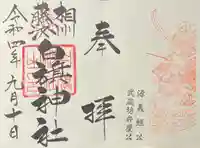 奉拝
相州藤沢
白旗神社
令和四年九月十日
源義経公
武蔵坊弁慶公